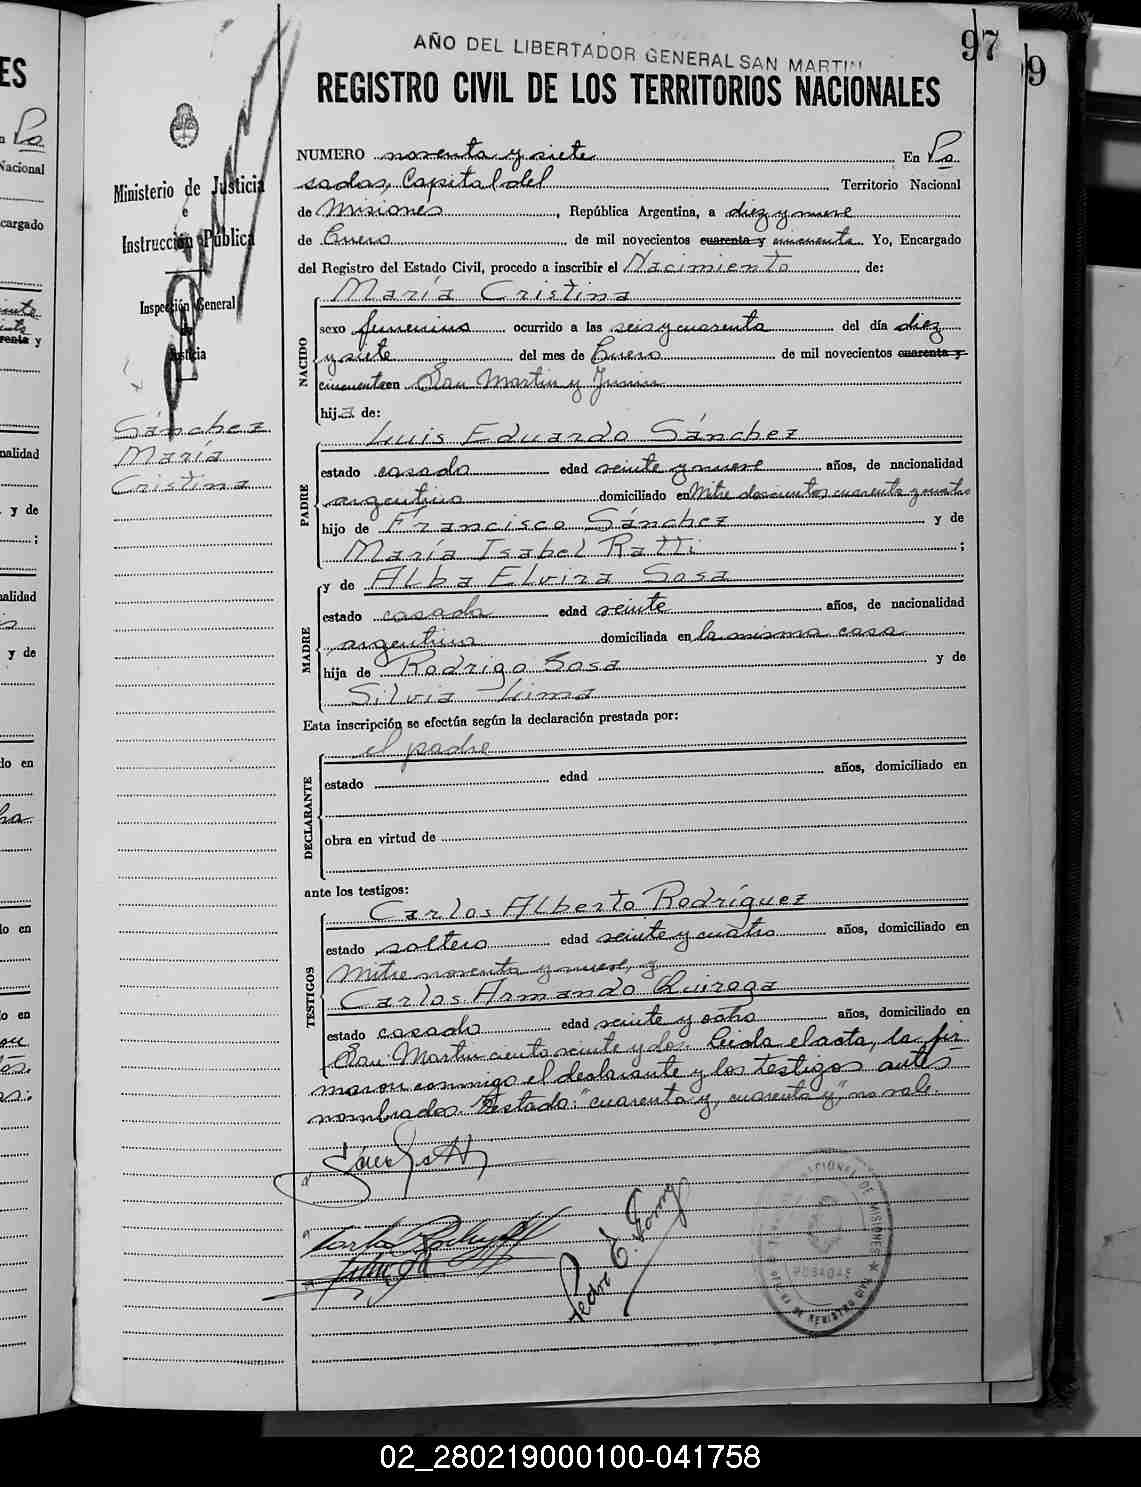 AÑO DEL LIBERTADOR GENERAL SAN MARTIN
97
9
REGISTRO CIVIL DE LOS TERRITORIOS NACIONALES
Ministerio de Justicia
e
Instrucción Pública
Inspección General
de
Justicia
Sánchez
María
Cristina
NUMERO noventa y siete En Po
sadas, Capital del Territorio Nacional
de Misiones, República Argentina, a diez y nueve
de Enero de mil novecientos cuarenta y cincuenta. Yo, Encargado
del Registro del Estado Civil, procedo a inscribir el Nacimiento de:
María Cristina
NACIDO
sexo femenino ocurrido a las seis y cuarenta del día diez
y siete del mes de Enero de mil novecientos cuarenta y
cincuenta en San Martin y Junin
hija de:
Luis Eduardo Sánchez
PADRE
estado casado edad veinte y nueve años, de nacionalidad
argentino domiciliado en Mitre doscientos cuarenta y cuatro
hijo de Francisco Sánchez y de
María Isabel Ratti;
y de Alba Elvira Sosa
MADRE
estado casada edad veinte años, de nacionalidad
argentina domiciliada en la misma casa
hija de Rodrigo Sosa y de
Silvia Lima
Esta inscripción se efectúa según la declaración prestada por:
el padre
DECLARANTE
estado edad años, domiciliado en
obra en virtud de
ante los testigos:
Carlos Alberto Rodríguez
TESTIGOS
estado soltero edad veinte y cuatro años, domiciliado en
Mitre noventa y nueve, y
Carlos Armando Quiroga
estado casado edad veinte y ocho años, domiciliado en
San Martin ciento veinte y dos. Leida el acta, la fir
maron conmigo el declarante y los testigos antes
nombrados. Testado: "cuarenta y, cuarenta y", no vale.
Pedro E. Gomez
POSADAS
02_280219000100-041758